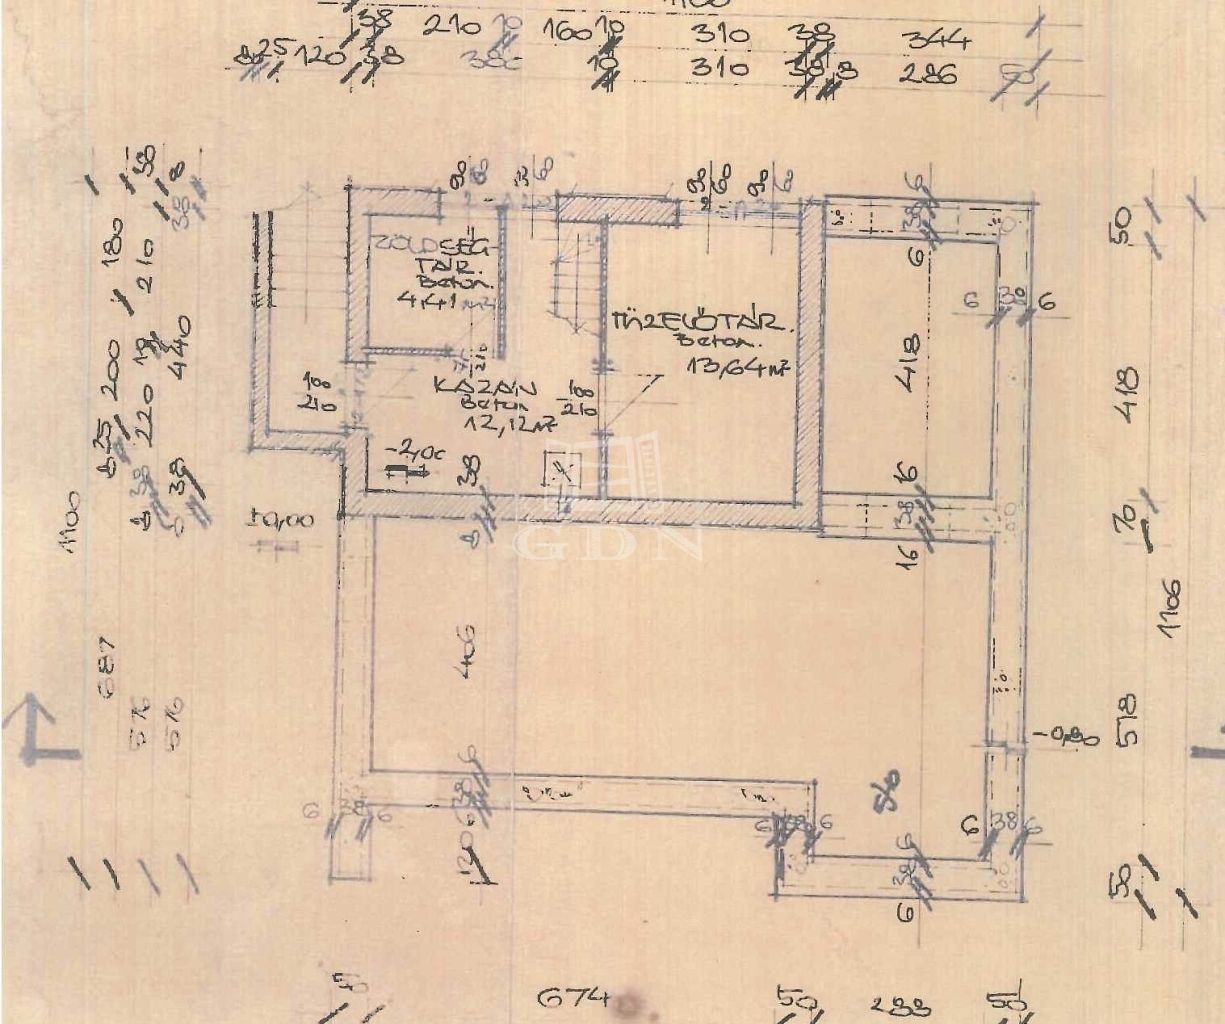 38 210 10 160 10 310 38 344
25 120 38 380 10 310 38 8 286 50
90 60
90 60
90 60
ZÖLDSÉG
TÁR.
Beton.
4,41 m2
TÜZELŐTÁR.
Beton.
13,64 m²
KAZÁN
Beton
12,12 m²
100
210
210
-2,00
±0,00
38
GDN
38 180
8 210 38
200 10 440
25 220
38 38
1100
687
576
576
406
6
38
6
6 38 6
6
38
6
6 38 6
418
16
38
16
50
418
70
1106
518
-0,90
540
6 38 6
6 38 6
6
38
6
50
674 50 288 50